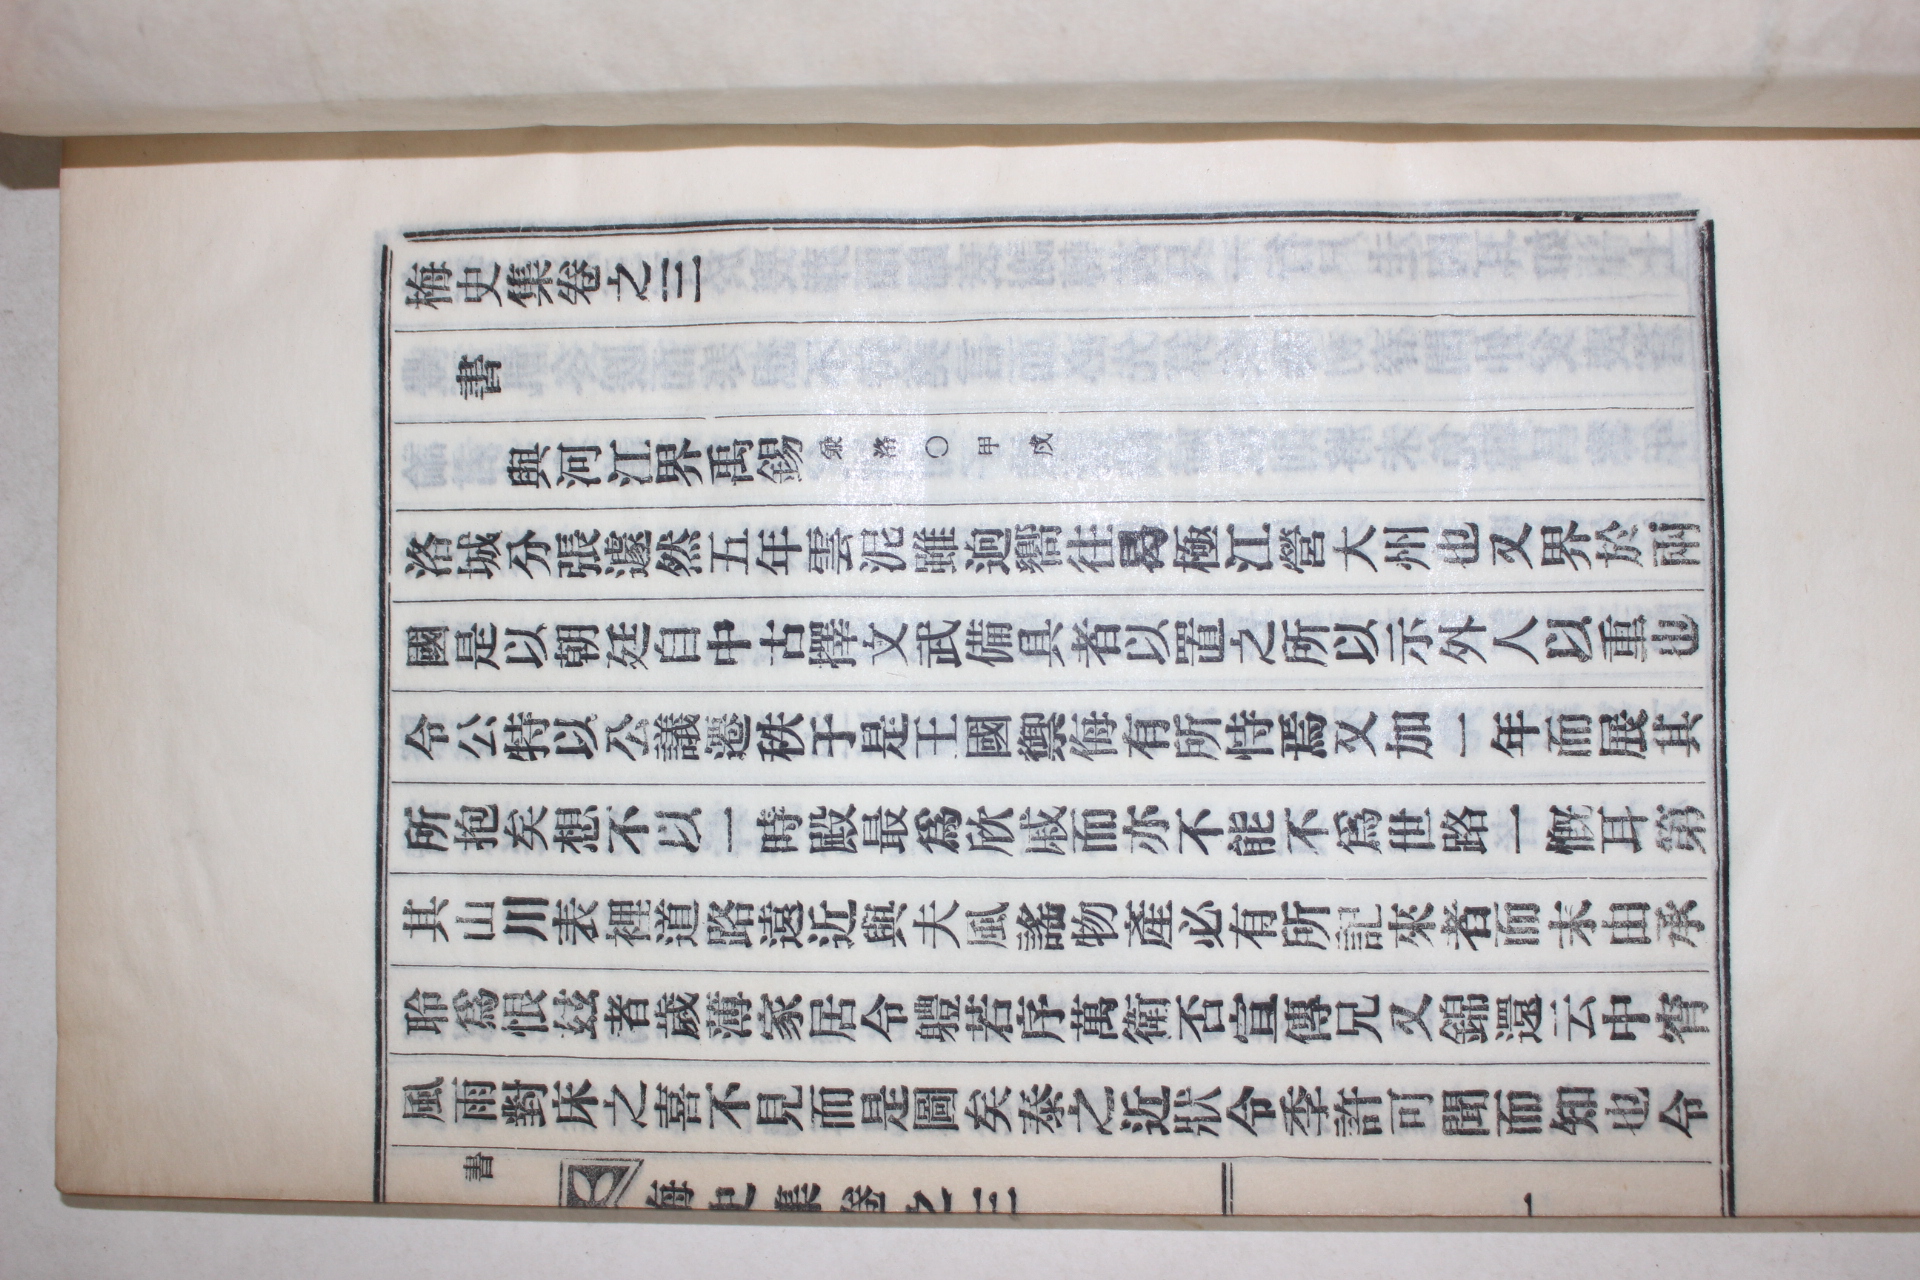 梅史集卷之三
書
與河江界禹錫 兼洛〇甲戌
洛城分張遽然五年雲泥雖逈嚮往曷極江營大州也又界於兩
國是以朝廷自中古擇文武備具者以置之所以示外人以重也
令公特以公議遷秩于是王國禦侮有所恃焉又加一年而展其
所抱矣想不以一時殿最爲欣戚而亦不能不爲世路一慨耳第
其山川表裡道路遠近與夫風謠物產必有所記來者而末由承
聆爲恨玆者歲薄家居令軆若序萬衛否宣傳兄又錦還云中宵
風雨對床之喜不見而是圖矣泰之近狀令季許可聞而知也令
書
梅史集卷之三
一